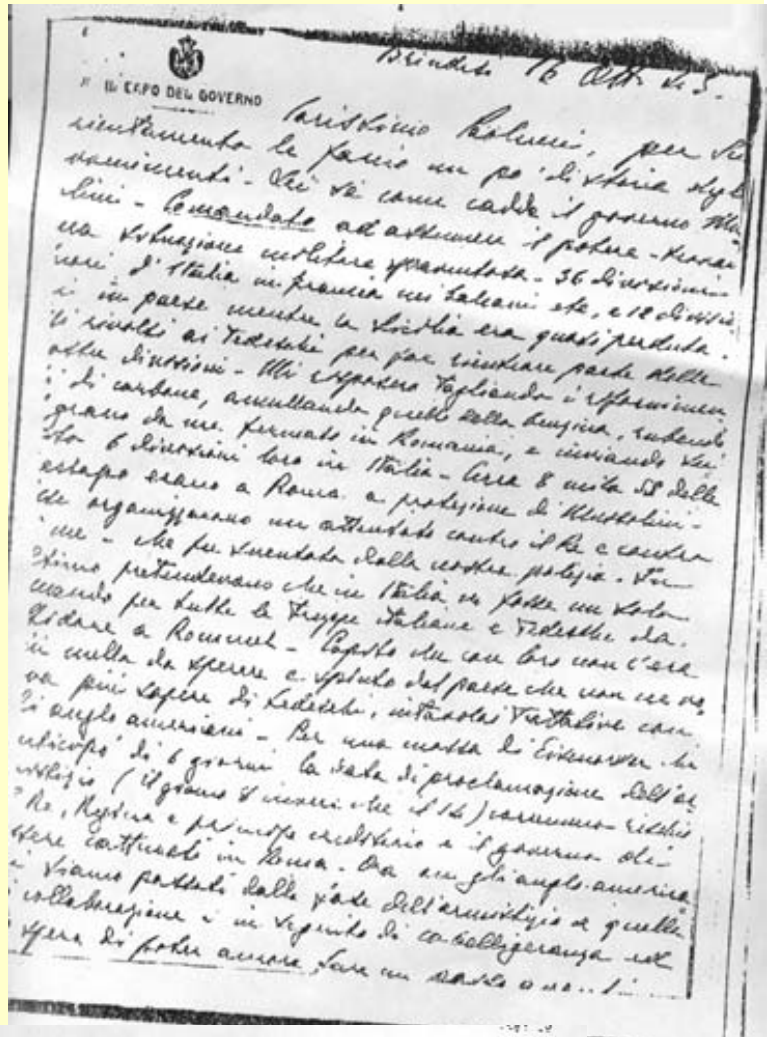 Brindisi 16 Ott. 43.
IL CAPO DEL GOVERNO
Carissimo Paolucci, per Su
rientamento le faccio un po' di storia degli
venimenti - Lei sa come cadde il governo Mus
lini - Comandato ad assumere il potere - trovai
una situazione militare spaventosa - 36 divisioni
fuori d'Italia in Francia nei Balcani etc, e 12 divisio
ni in paese mentre la Sicilia era quasi perduta.
Mi rivolsi ai Tedeschi per far rientrare parte delle
nostre divisioni - Mi risposero tagliando i rifornimen
ti di carbone, annullando quelli della benzina, rubando
grano da me fermato in Romania, e inviando sei
6 divisioni loro in Italia - Circa 8 mila SS delle
erano a Roma a protezione di Mussolini -
che organizzarono un attentato contro il Re e contro
me - che fu sventato dalla nostra polizia. In
pretendevano che in Italia vi fosse un solo
comando per tutte le truppe italiane e tedesche da.
a Rommel - Capito che con loro non c'era
nulla da sperare e spinto dal paese che non ne vo
va più sapere di tedeschi, intavolai trattative con
gli anglo americani - Per una mossa di Eisenower che
anticipò di 6 giorni la data di proclamazione dell'ar
mistizio (il giorno 8 invece che il 14) corremmo rischio
Re, Regina e principe ereditario e il governo di
essere catturati in Roma. Ora con gli anglo-america
ni siamo passati dalla fase dell'armistizio a quella
collaborazione e in seguito di cobelligeranza ed
spero di poter ancora fare un